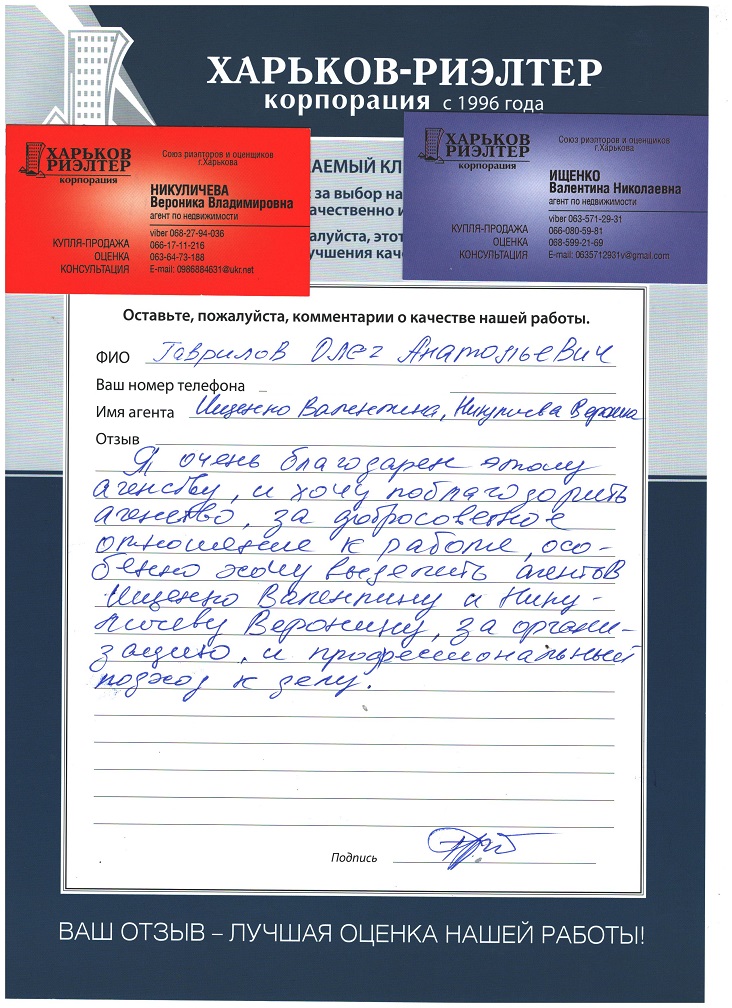 ХАРЬКОВ-РИЭЛТЕР
корпорация с 1996 года
ХАРЬКОВ
РИЭЛТЕР
корпорация
Союз риэлторов и оценщиков
г.Харькова
НИКУЛИЧЕВА
Вероника Владимировна
агент по недвижимости
viber 068-27-94-036
066-17-11-216
063-64-73-188
E-mail: 0986884631@ukr.net
КУПЛЯ-ПРОДАЖА
ОЦЕНКА
КОНСУЛЬТАЦИЯ
ХАРЬКОВ
РИЭЛТЕР
корпорация
Союз риэлторов и оценщиков
г.Харькова
ИЩЕНКО
Валентина Николаевна
агент по недвижимости
viber 063-571-29-31
066-080-59-81
068-599-21-69
E-mail: 0635712931v@gmail.com
КУПЛЯ-ПРОДАЖА
ОЦЕНКА
КОНСУЛЬТАЦИЯ
АЕМЫЙ КЛ
за выбор на
ачественно и
алуйста, этот
учшения каче
Оставьте, пожалуйста, комментарии о качестве нашей работы.
ФИО Гаврилов Олег Анатольевич
Ваш номер телефона
Имя агента Ищенко Валентина, Никуличева Вероника
Отзыв
Я очень благодарен этому
агенству, и хочу поблагодорить
агенство, за добросовестное
отношение к работе, осо-
бенно хочу выделить агентов
Ищенко Валентину и Нику-
личеву Веронику, за органи-
зацию, и профессиональный
подход к делу.
Подпись
ВАШ ОТЗЫВ – ЛУЧШАЯ ОЦЕНКА НАШЕЙ РАБОТЫ!